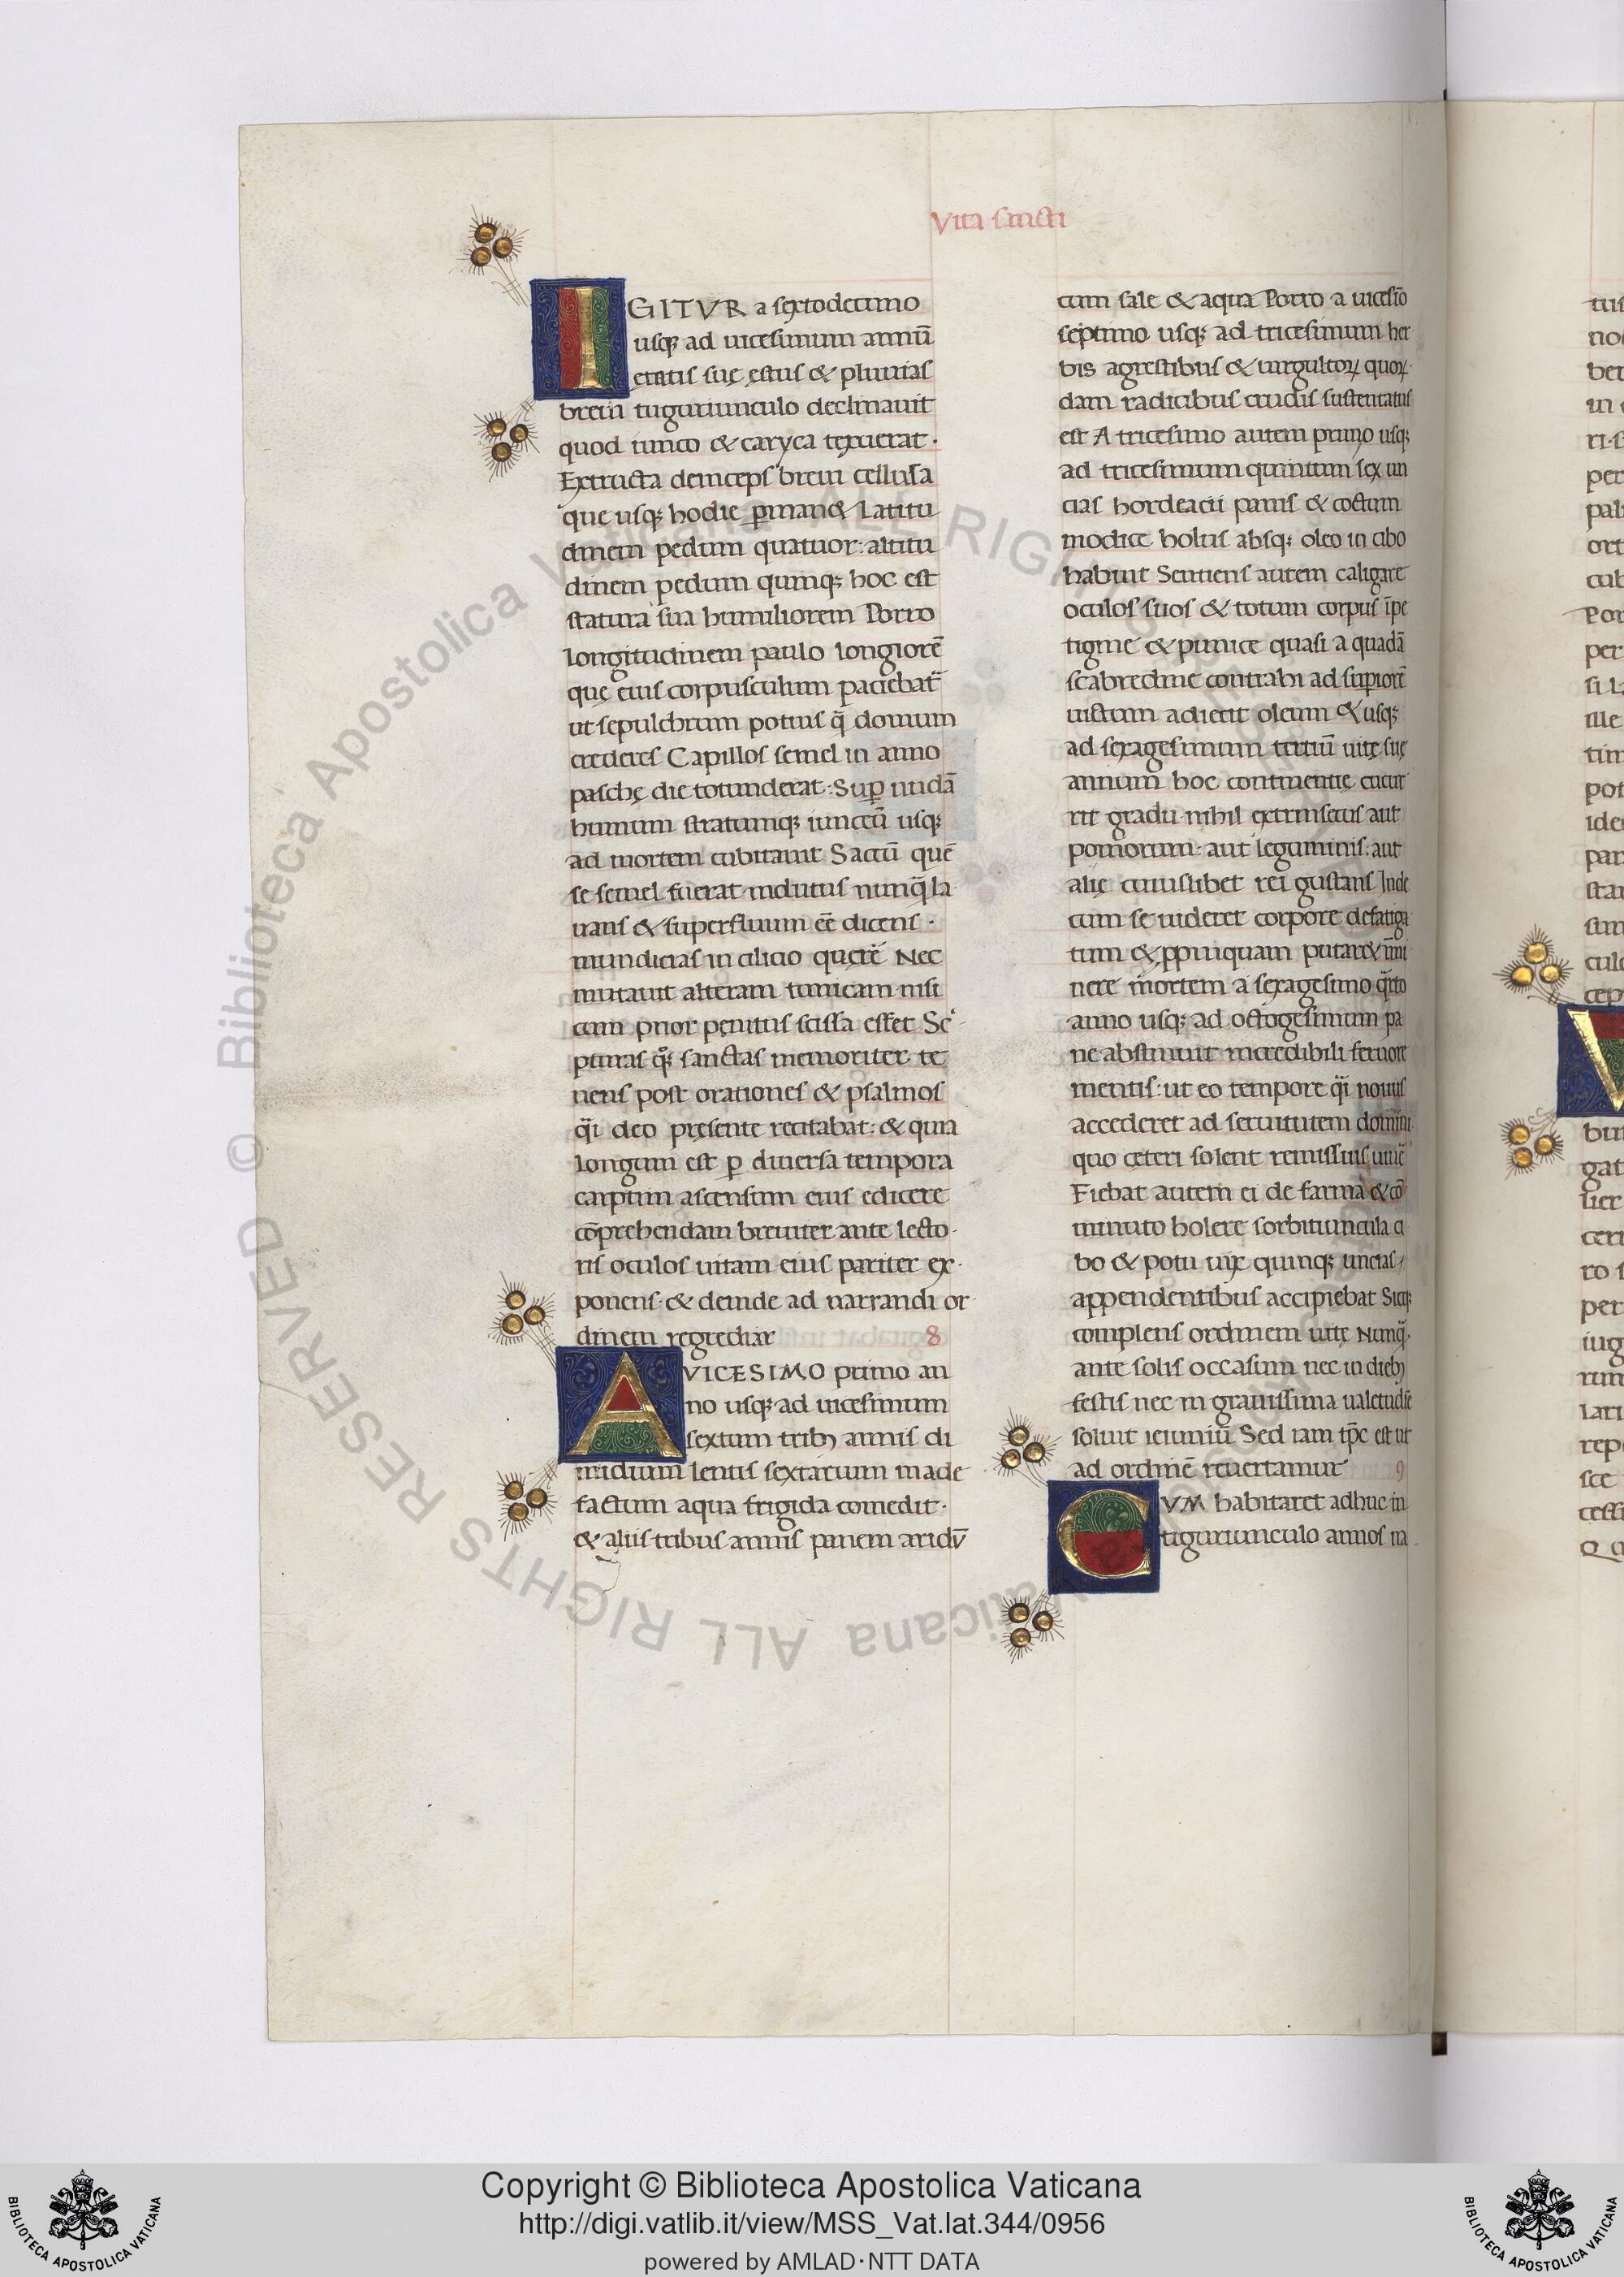 Vita sancti
IGITVR a sextodecimo
usq; ad uicesimum annū
etatis suę ęstus & pluuias
breui tuguriunculo declinauit
quod iunco & caryca texuerat.
Extructa deinceps breui cellula
que usq; hodie ꝑman& Latitu
dinem pedum quatuor: altitu
dinem pedum quinq; hoc est
statura sua humiliorem Porro
longitudinem paulo longiorē
quę eius corpusculum paciebat̄
ut sepulchrum potius q̄ domum
crederes Capillos semel in anno
paschę die totunderat: Suꝑ nudā
humum stratumq; iunceū usq;
ad mortem cubitauit Saccū quē
se semel fuerat indutus nunq̄ la
uans & superfluum eē dicens.
mundicias in cilicio quęrē Nec
mutauit alteram tunicam nisi
cum prior penitus scissa esset Sc
pturas qͦ; sanctas memoriter te
nens post orationes & psalmos
q̄i deo pręsente recitabat: & quia
longum est ꝑ diuersa tempora
carptim ascensum eius edicere
cōprehendam breuiter ante lecto
ris oculos uitam eius pariter ex
ponens & deinde ad narrandi or
dinem regrediar 8
A VICESIMO primo an
no usq; ad uicesimum
sextum trib; annis di
midium lentis sextarium made
factum aqua frigida comedit.
& aliis tribus annis panem aridū
cum sale & aqua Porro a uicesīo
septimo usq; ad tricesimum her
bis agrestibus & uirgultoꝝ quoꝝ
dam radicibus crudis sustentatus
est A tricesimo autem primo usq;
ad tricesimum quintum sex un
cias hordeacii panis & coctum
modice holus absq; oleo in cibo
habuit Sentiens autem caligare
oculos suos & totum corpus īpe
tigine & pumice quasi a quadā
scabredine contrahi ad suꝑiorē
uictum adiecit oleum & usq;
ad sexagesimum tertiū uitę suę
annum hoc continentię cucur
rit gradu nihil extrinsecus aut
pomorum: aut leguminis: aut
alię cuiuslibet rei gustans Inde
cum se uideret corpore defatiga
tum & ꝓpinquam putar& īmi
nere mortem a sexagesimo qͣrto
anno usq; ad octogesimum pa
ne abstinuit incredibili feruore
mentis: ut eo tempore q̄i nouus
accederet ad seruitutem domini
quo ceteri solent remissius uiuē
Fiebat autem ei de farina & cō
minuto holere sorbitiuncula ci
bo & potu uix quinq; uncias
appendentibus accipiebat Sicq;
complens ordinem uitę Nunq̄
ante solis occasum nec in dieb;
festis nec in grauissima ualetudīe
soluit ieiuniū Sed iam tp̄c est ut
ad ordinē reuertamur 9
CVM habitaret adhuc in
tuguriunculo annos na
Copyright © Biblioteca Apostolica Vaticana
http://digi.vatlib.it/view/MSS_Vat.lat.344/0956
powered by AMLAD·NTT DATA